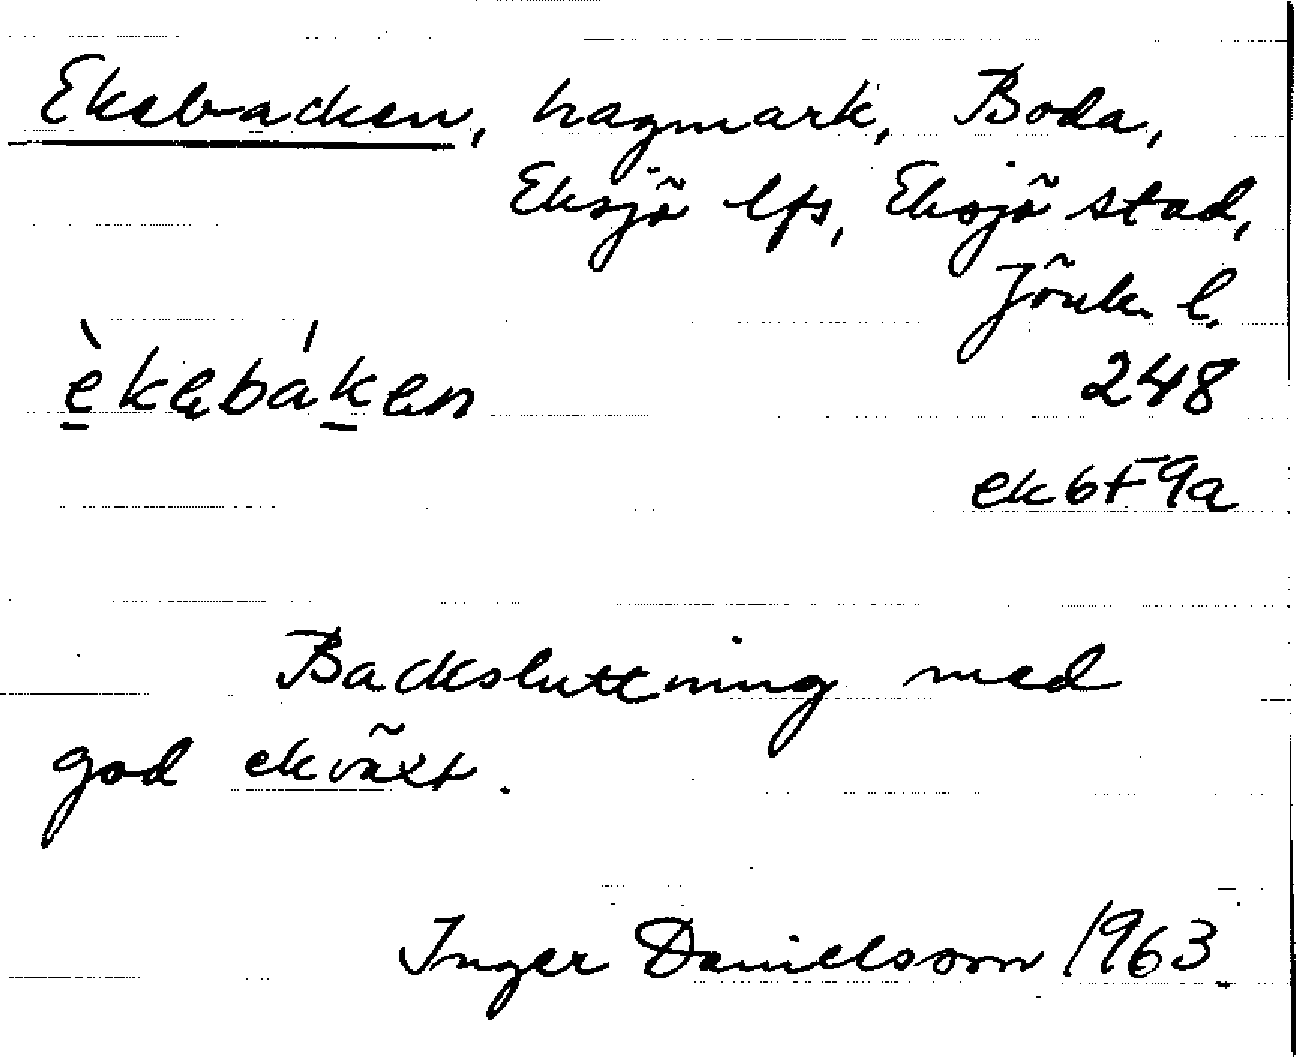 Ekebacken, hagmark, Boda,
Eksjö lfs, Eksjö stad,
Jönk. l.
èkebáken
248
ek 6F9a
Backsluttning med
god ekväxt.
Inger Danielsson 1963